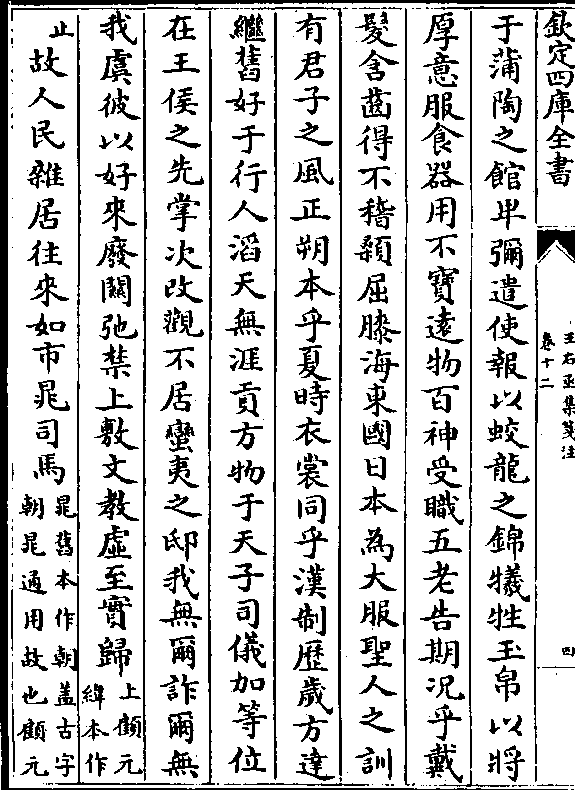 欽定四庫全書
王右丞集箋注
卷十二
四
于蒲陶之館卑彌遣使報以蛟龍之錦犧牲玉帛以將
厚意服食器用不寶遠物百神受職五老告期況乎戴
髮含齒得不稽顙屈膝海東國日本為大服聖人之訓
有君子之風正朔本乎夏時衣裳同乎漢制歴歲方達
繼舊好于行人滔天無涯貢方物于天子司儀加等位
在王侯之先掌次改觀不居蠻夷之邸我無爾詐爾無
我虞彼以好來廢關弛禁上敷文教虛至實歸上顧元緯本作
止故人民雜居往來如市鼂司馬鼂舊本作朝盖古字朝鼂通用故也顧元